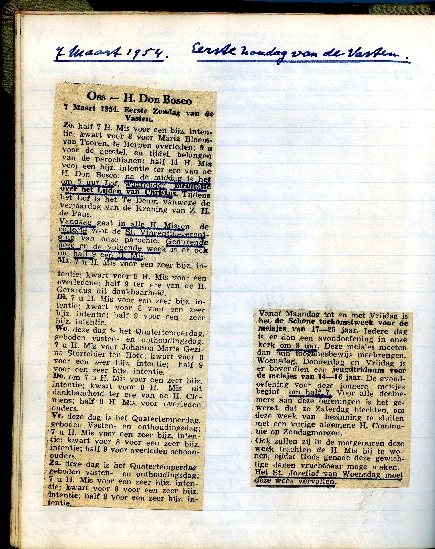 7 Maart 1954. Eerste Zondag van de Vasten.
Oss — H. Don Bosco
7 Maart 1954. Eerste Zondag van de
Vasten.
Zo. half 7 H. Mis voor een bijz. inten-
tie; kwart voor 8 voor Maria Bloem-
van Tooren, te Herpen overleden; 9 u
voor de geestel. en tijdel. belangen
van de parochianen; half 11 H. Mis
voor een bijz. intentie ter ere van de
H. Don Bosco; na de middag is het
om 3 uur Lof,
over het Lijden van Christus. Tijdens
het Lof is het Te Deum vanwege de
verjaardag van de Kroning van Z. H.
de Paus.
Vandaag gaat in alle H. Missen de
voor de St. Vincentiusvereni-
ging van onze parochie. Gedurende
deze en de volgende week is er ook
om half 9 een H. Mis.
Ma. 7 u H. Mis voor een bijz. in-
tentie; kwart voor 8 H. Mis voor een
bijz. intentie; half 9 ter ere van de H.
Gerardus uit dankbaarheid.
Di. 7 u H. Mis voor een bijz. in-
tentie; kwart voor 8 voor een zeer
bijz. intentie; half 9 voor een zeer
bijz. intentie.
Wo. deze dag is het Quatertemperdag,
geboden vasten- en onthoudingsdag;
7 u H. Mis voor Johanna Maria Gezi-
na; kwart voor 8
voor een zeer bijz. intentie; half 9
voor een zeer bijz. intentie.
Do. 7 u H. Mis voor een zeer bijz. in-
tentie; kwart voor 8 H. Mis uit
dankbaarheid ter ere van de H. Cle-
mens; half 9 H. Mis voor overleden
ouders.
Vr. deze dag is het Quatertemperdag,
geboden Vasten- en onthoudingsdag;
7 u H. Mis voor een zeer bijz. inten-
tie; kwart voor 8 voor een zeer bijz.
intentie; half 9 voor overleden schoon-
ouders.
Za. deze dag is het Quatertemperdag
geboden vasten- en onthoudingsdag;
7 u H. Mis voor een zeer bijz. inten-
tie; kwart voor 8 voor een zeer bijz.
intentie; half 9 voor een zeer bijz.
intentie.
Vanaf Maandag tot en met Vrijdag is
het de Schone toekomstweek voor de
meisjes van 17—25 jaar. Iedere dag
is er dan een avondoefening in onze
kerk om 8 uur. Deze meisjes moeten
dan hun toegangsbewijs meebrengen.
Woensdag, Donderdag en Vrijdag is
er bovendien een jeugdtriduum voor
de meisjes van 14—16 jaar. De avond-
oefening voor deze jongere meisjes
begint om half 7. Voor alle deelne-
mers aan deze oefeningen is het ge-
wenst, dat ze Zaterdag biechten, om
deze week van bezinning te sluiten
met een vurige algemene H. Commu-
nie op Zondagmorgen.
Ook zullen zij in de morgenuren deze
week trachten de H. Mis bij te wo-
nen, opdat Gods genade deze gewich-
tige dagen vruchtbaar moge maken.
Het St. Jozeflof van Woensdag moet
deze week vervallen.